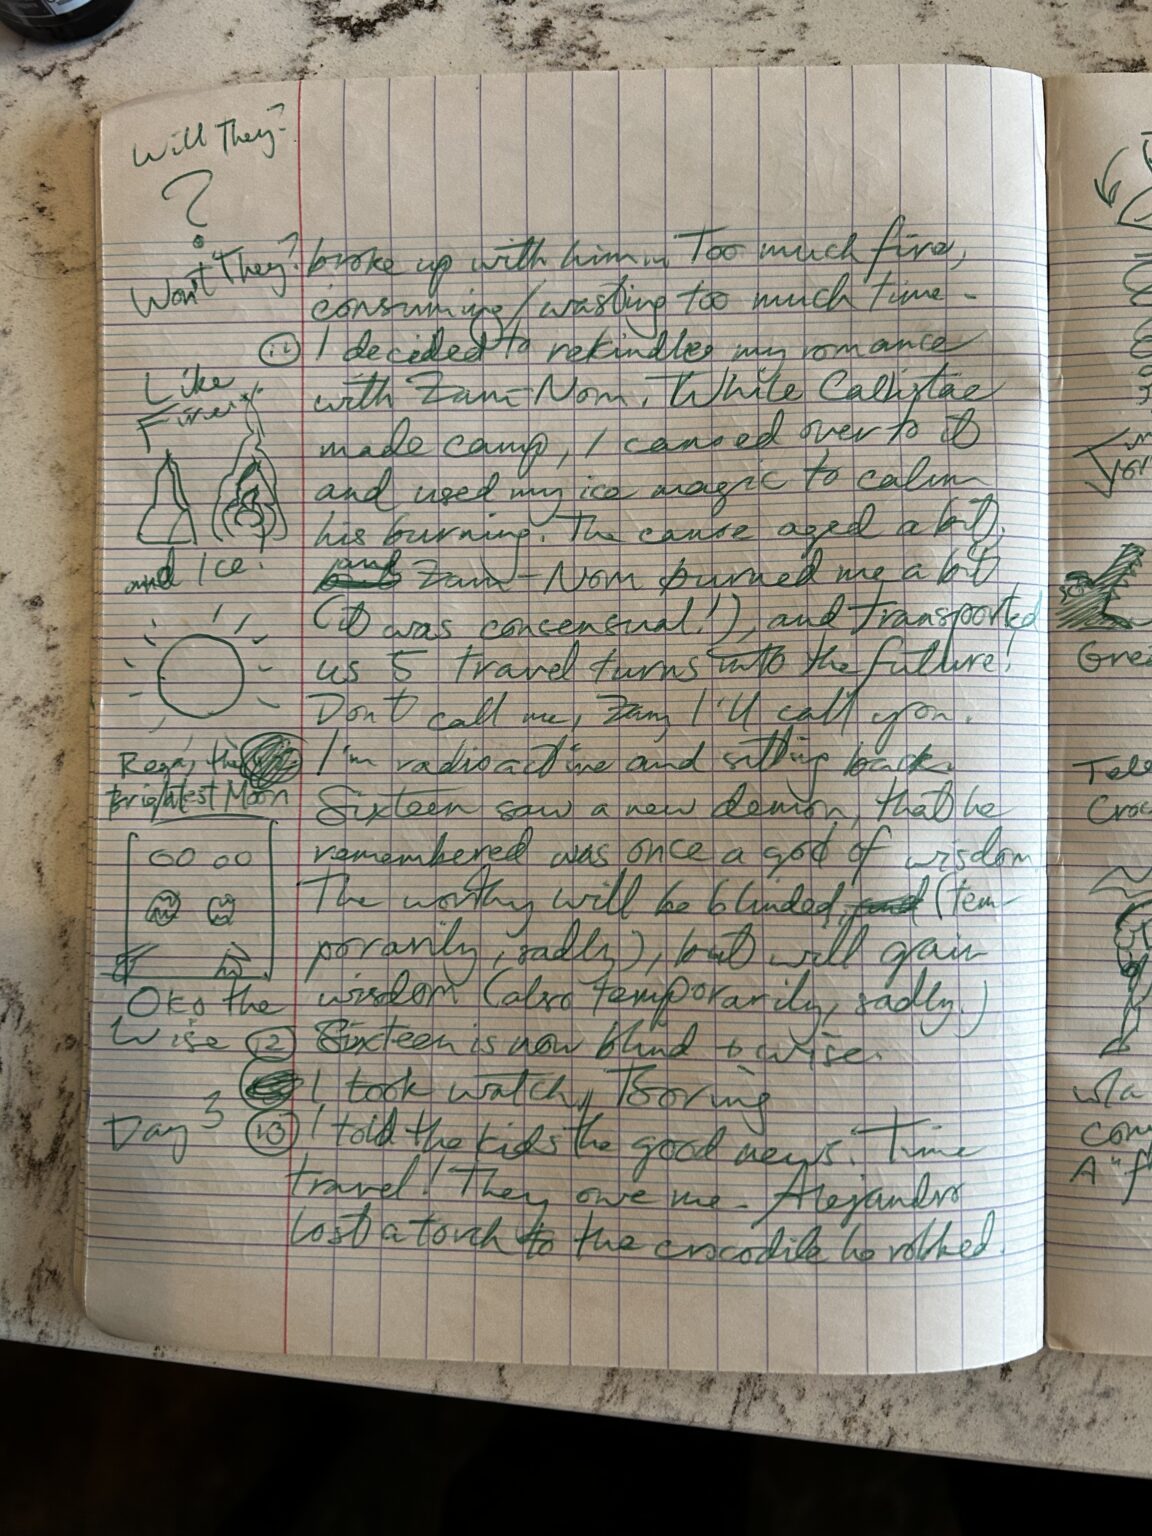 Will They?
?
Won't They?
broke up with him. Too much fire,
consuming/wasting too much time.
I decided to rekindle my romance
with Zam-Nom. While Callistae
made camp, I canoed over to it
and used my ice magic to calm
his burning. The canoe aged a bit,
and Zam-Nom burned me a bit
(it was consensual!), and transported
us 5 travel turns into the future!
Don't call me, Zam, I'll call you.
I'm radioactive and sitting back.
Sixteen saw a new demon, that he
remembered was once a god of wisdom
The worthy will be blinded, (tem-
porarily, sadly), but will gain
wisdom (also temporarily, sadly.)
(12) Sixteen is now blind + wise.
I took watch, Boring
(13) I told the kids the good news. Time
travel! They owe me. Alejandro
lost a torch to the crocodile he robbed.
Like
Fire
and Ice!
the
Brightest Moon
Oko the
Wise
Day 3
Gre
Tele
Croc
w/a
com
A "f